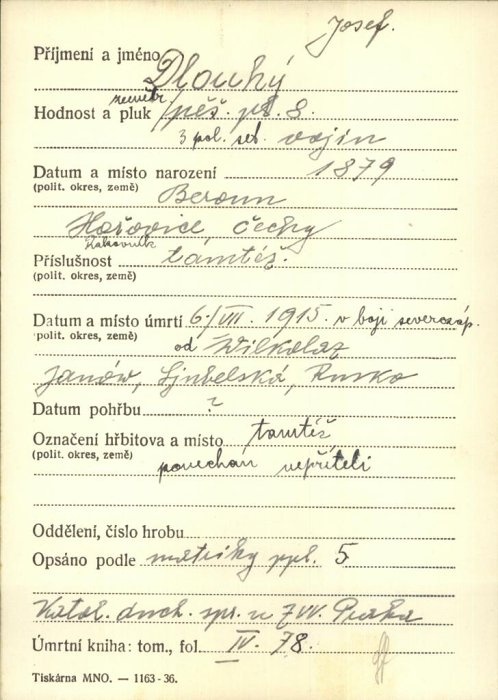 Josef.
Příjmení a jméno Dlouhý
Hodnost a pluk zeměbr. pěš. pl. 8.
3 pol. set. vojín
Datum a místo narození 1879
(polit. okres, země) Beroun
Hořovice, Čechy
Rakovník
Příslušnost tamtéž.
(polit. okres, země)
Datum a místo úmrtí 6./VII. 1915. v boji severozáp.
(polit. okres, země) od Wilkolaz
Janów, Ljubelská, Rusko
Datum pohřbu ?
Označení hřbitova a místo tamtéž
(polit. okres, země) ponechán nepříteli
Oddělení, číslo hrobu
Opsáno podle matriky ppl. 5
Katol. duch. spr. u ZVV. Praha
Úmrtní kniha: tom., fol. IV. 78.
Tiskárna MNO. — 1163-36.